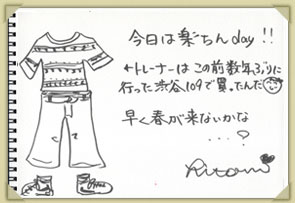 今日は楽ちんday!!
←トレーナーはこの前数年ぶりに
行った渋谷109で買ったんだ
早く春が来ないかな
...?